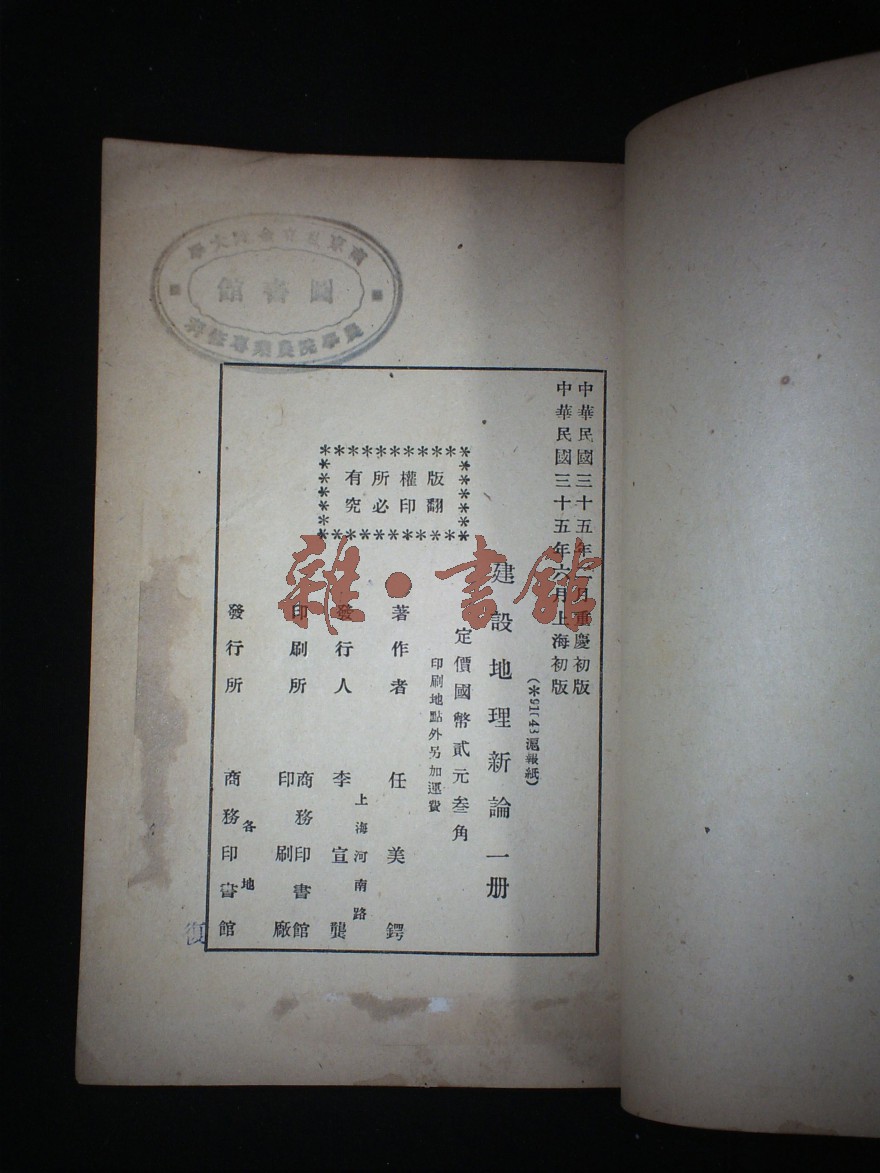 圖書館
中華民國三十五年 月重慶初版
中華民國三十五年六月上海初版
(*91143滬報紙)
建設地理新論一册
定價國幣貳元叁角
印刷地點外另加運費
版權所有
翻印必究
著作者 任美鍔
上海河南路
發行人 李宣龔
印刷所 商務印書館印刷廠
各地
發行所 商務印書館
復
雜·書館